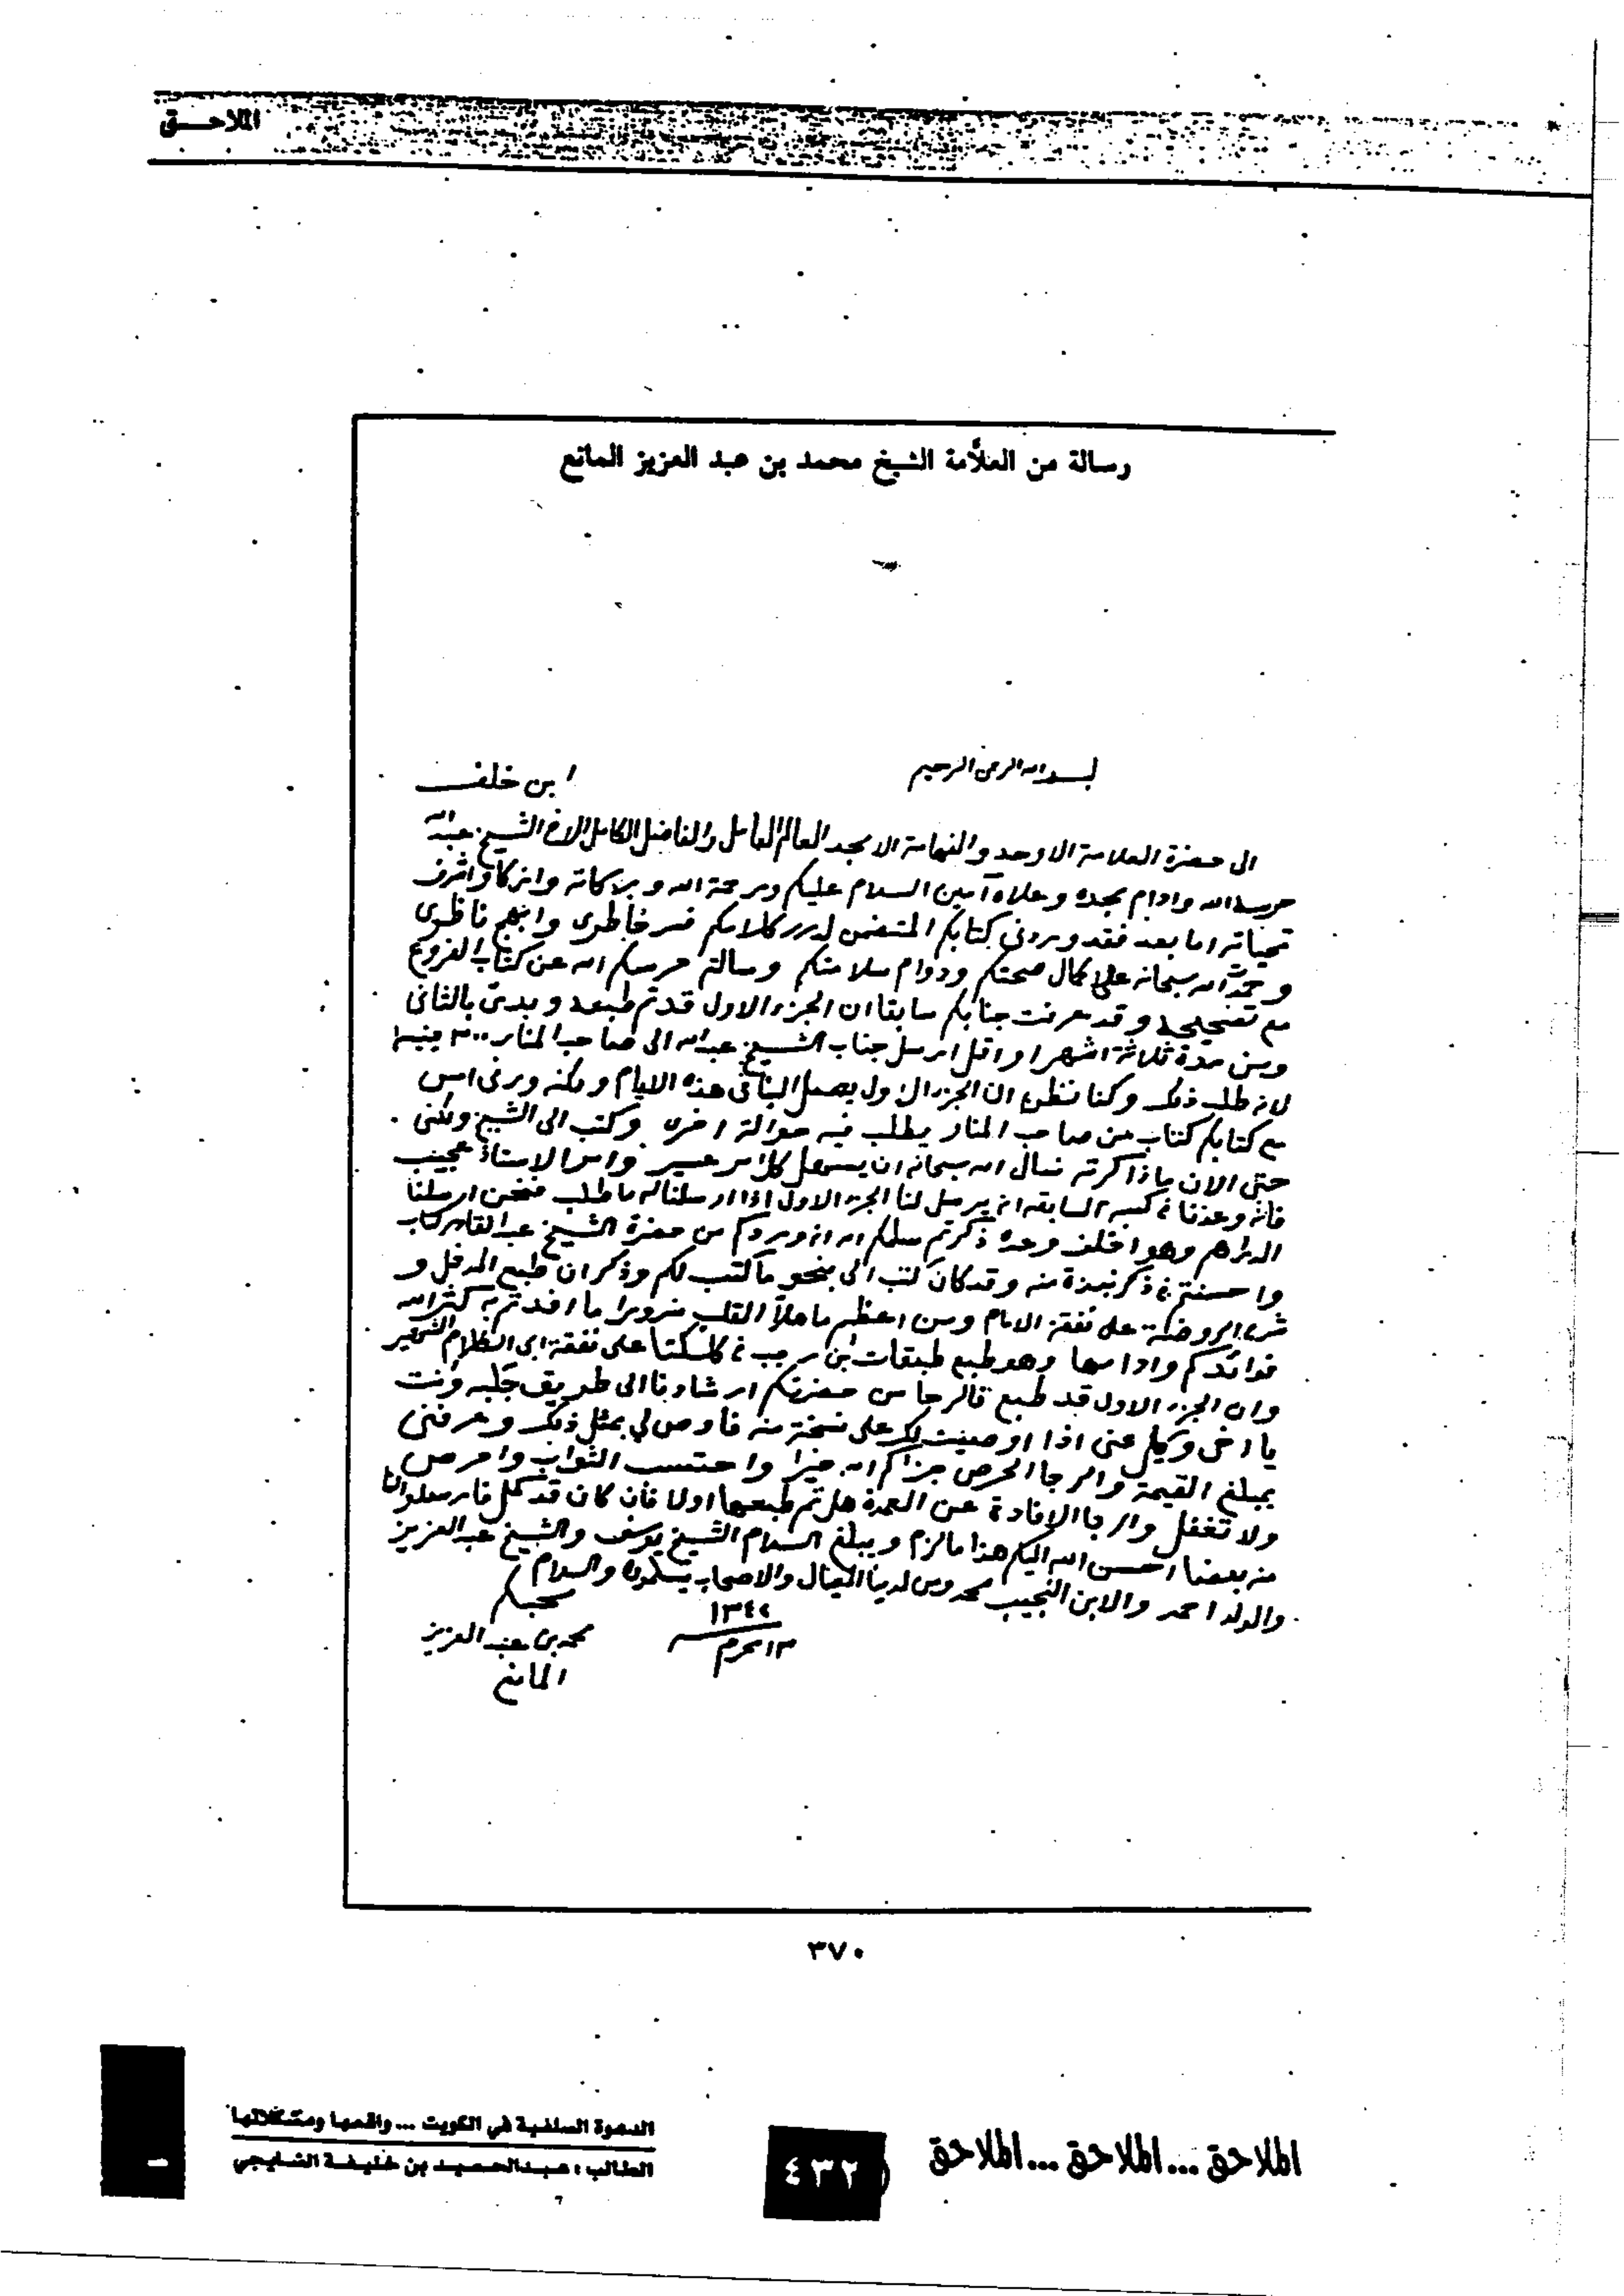 الملاحـــق
رسالة من العلاَّمة الشيخ محمد بن عبد العزيز المانع
بسم الله الرحمن الرحيم
ابن خلف
الى حضرة العلامة الاوحد والفهامة الامجد العالم العامل والفاضل الكامل الاخ الشيخ عبدالله
حرسه الله وادام مجده وعلاه آمين السلام عليكم ورحمة الله وبركاته وازكا واشرف
تحياته اما بعد فقد وردني كتابكم المتضمن لدرر كلامكم فسر خاطري وابهج ناظري
و الله سبحانه على كمال صحتكم ودوام سلامتكم وسالتم حرسكم الله عن كتاب الفروع
مع تصحيحه وقد عرفت جنابكم سابقا ان الجزء الاول قد تم طبعه وبدئ بالثاني
ومن مدة ثلاثة اشهر او اقل ارسل جناب الشيخ عبدالله الى صاحب المنار ٣٠٠ جنيها
لانه طلب ذلك وكنا نظن ان الجزء الاول يصل الينا في هذه الايام ولكنه وردني امس
مع كتابكم كتاب من صاحب المنار يطلب فيه حوالة اخرى وكتب الى الشيخ ولكني
حتى الان ما ذاكرته نسال الله سبحانه ان يسهل كل امر عسير وامر الاستاذ عجيب
فانه وعدنا في كتبه السابقه انه يرسل لنا الجزء الاول اذا ارسلنا له ما طلب فنحن ارسلنا
الدراهم وهو اخلف وعده ذكرتم سلمكم الله انه وردكم من حضرة الشيخ عبدالقادر كتاب
واحسنتم في ذكر نبذة منه وقد كان كتب الي بنحو ما كتب لكم وذكر ان طبع المدخل و
شرح الروضة على نفقة الامام ومن اعظم ما ملأ القلب سرورا ما افدتم به كثر الله
فوائدكم وادامها وهو طبع طبقات ابن رجب في كلكتا على نفقة
وان الجزء الاول قد طبع فالرجا من حضرتكم ارشادنا الى طريق جلبه وانت
يا اخي وكيل عني اذا اوصيت لك على نسخة منه فاوص لي بمثل ذلك وعرفني
بمبلغ القيمة والرجا الحرص جزاكم الله خيرا واحتسب الثواب واحرص
ولا تغفل والرجا الافادة عن العمدة هل تم طبعها اولا فان كان قد كمل فارسلوا لنا
منه بعضا احسن الله اليكم هذا ما لزم ويبلغ السلام الشيخ يوسف والشيخ عبدالعزيز
والولد احمد والابن النجيب محمد ومن لدينا العيال والاصحاب يسلمون والسلام
١٣٤٢
١٣ محرم
محبكم
محمد بن عبدالعزيز
المانع
٣٧٠
الدعوة السلفية في الكويت ... واقعها ومشكلاتها
الطالب : عبدالحميد بن خليفة الشايجي
٤٣٢
الملاحق ... الملاحق ... الملاحق